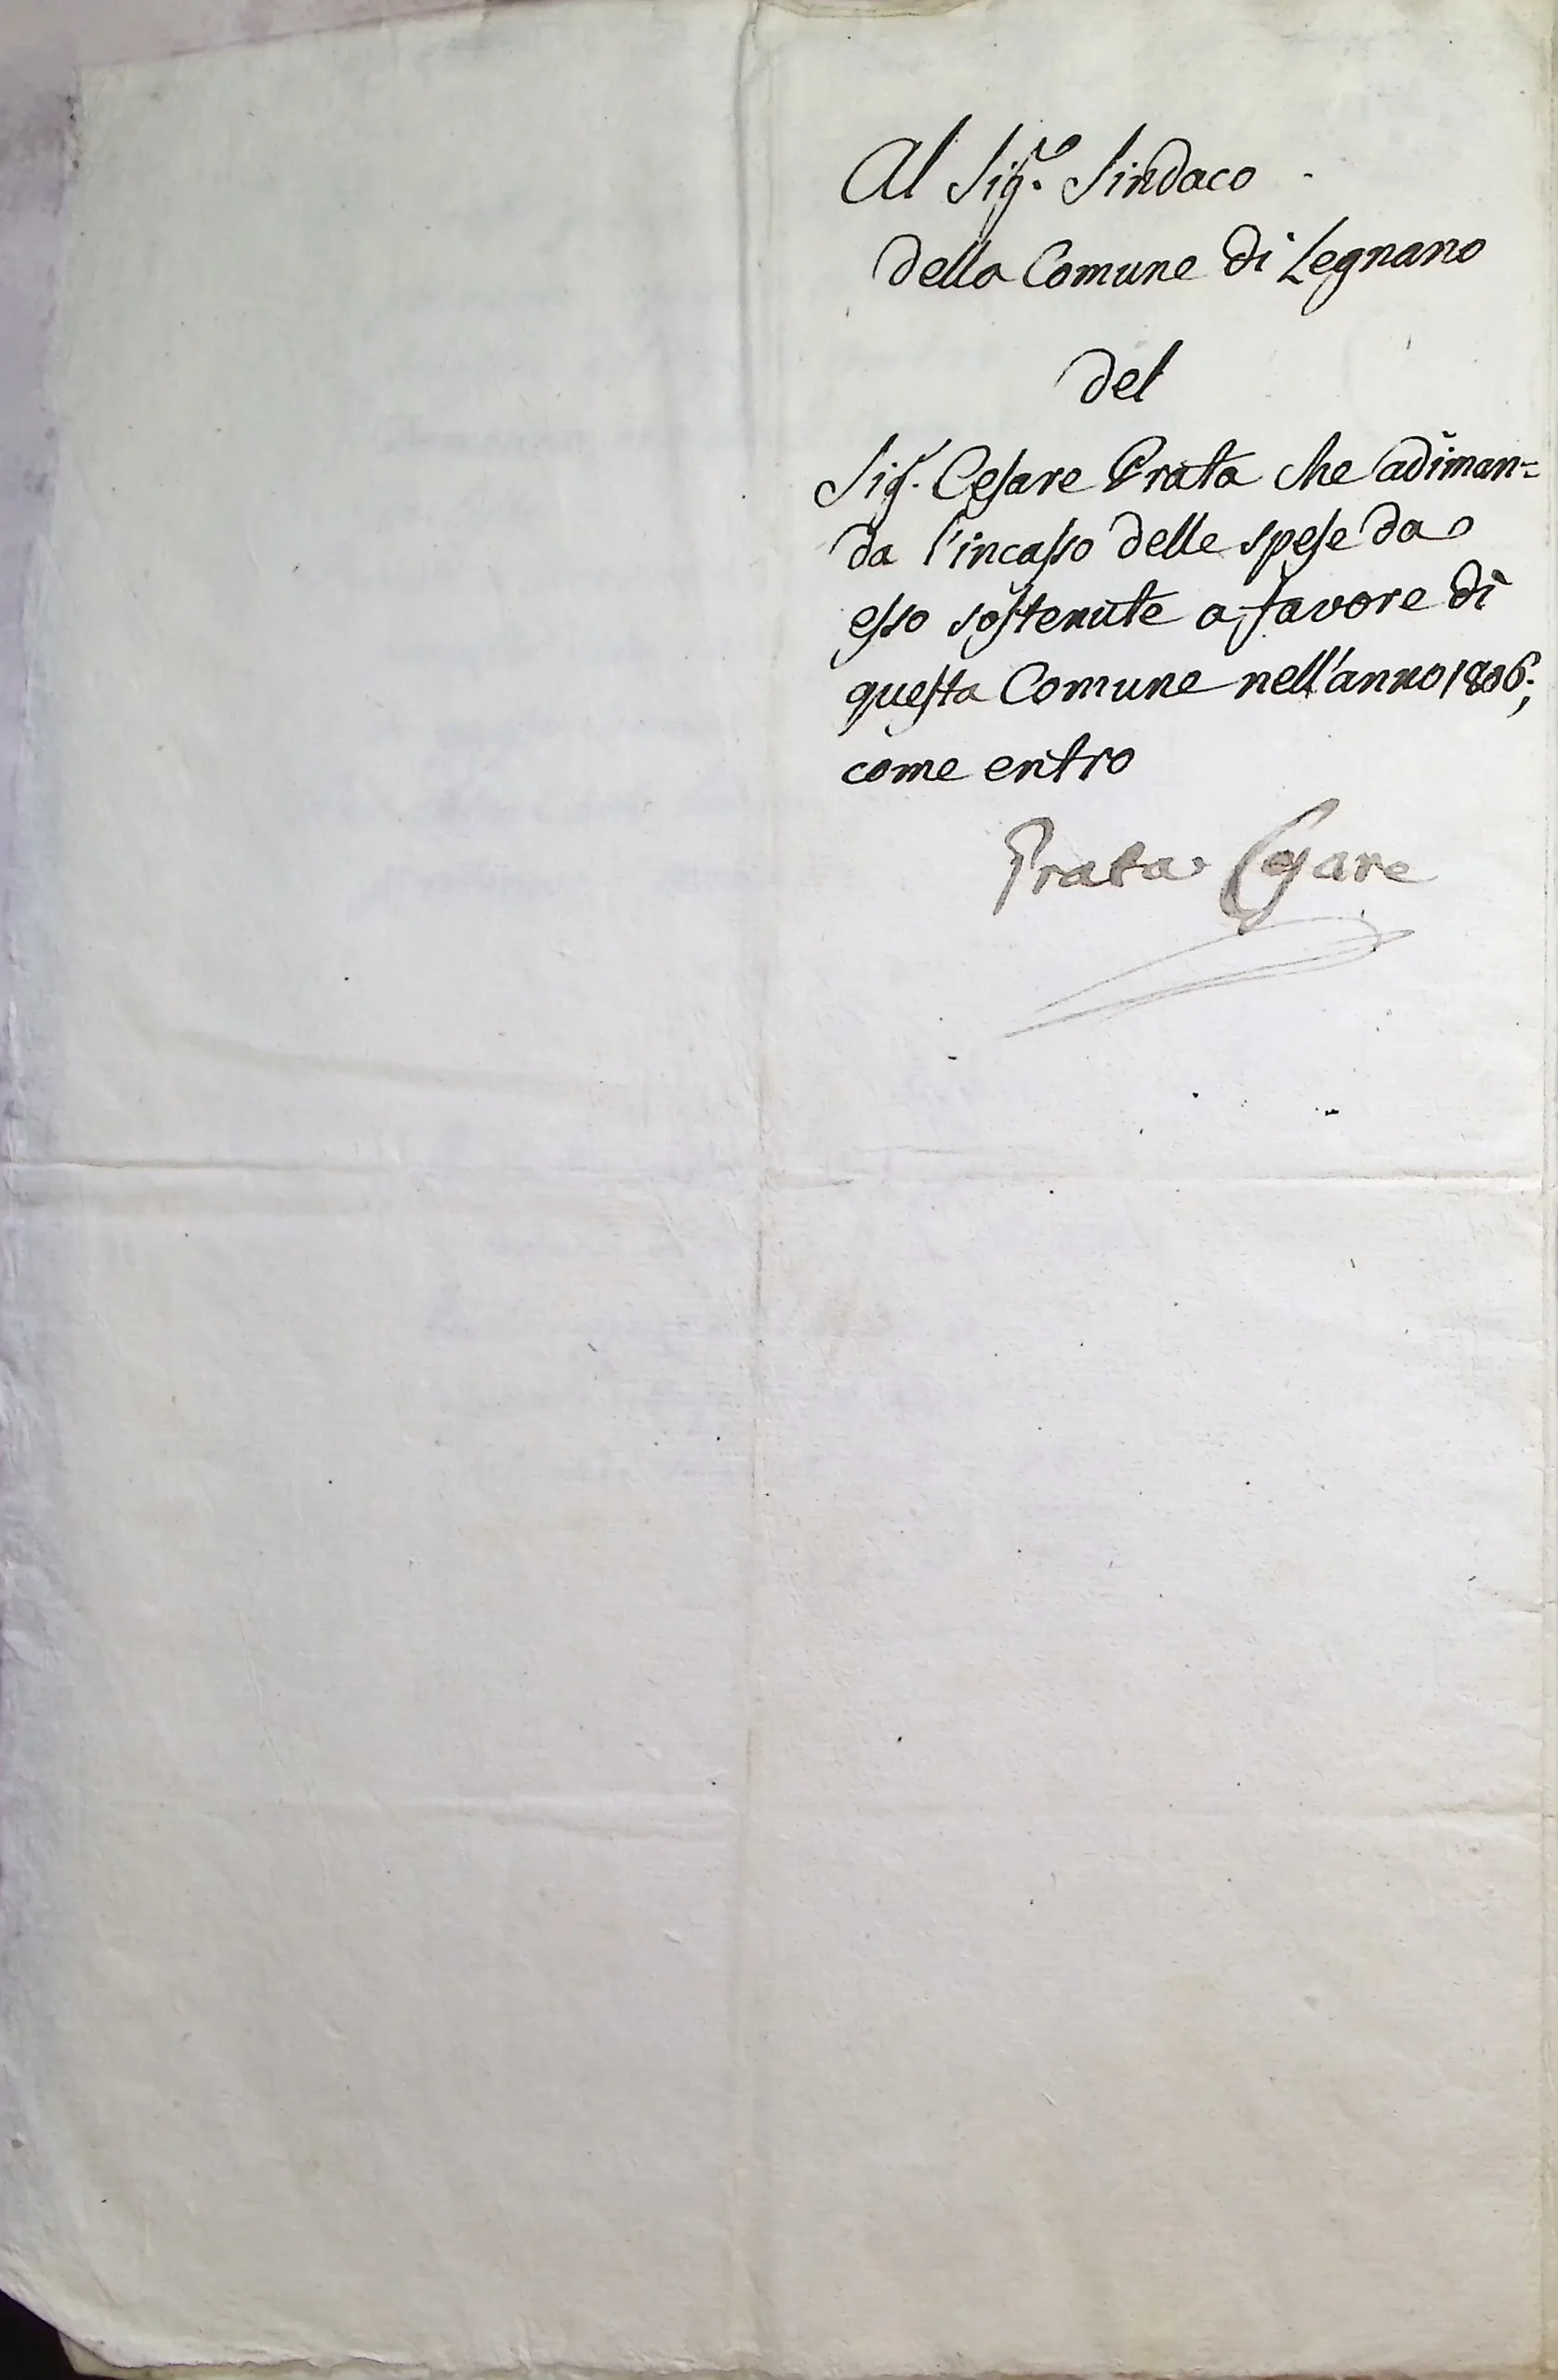 Al Sig.ro Sindaco
della Comune di Legnano
del
Sig.r Cesare Prata che adiman=
da l'incasso delle spese da
esso sostenute a favore di
questa Comune nell'anno 1806;
come entro
Prata Cesare